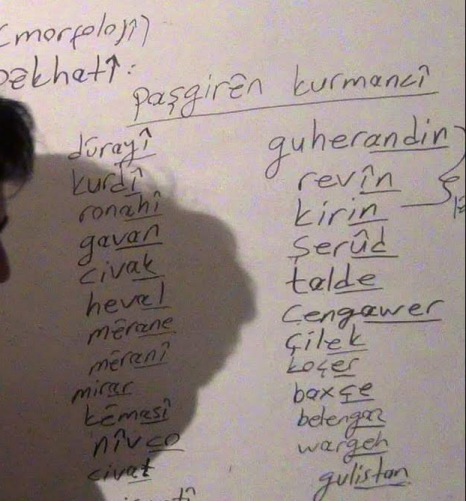 (morfolojî)
pêkhatî:
paşgirên kurmancî
dûrayî
kurdî
ronahî
gavan
civak
heval
mêrane
mêranî
mirar
kêmasî
nîvco
civat
guherandin
revîn
kirin
şerûd
talde
cengawer
çilek
koçer
baxçe
belengaz
wargeh
gulistan